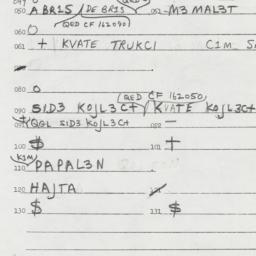 050 A BR1S / DE BR1S 051 M3 MAL3T
(QED CF 162090)
060 O
+ KVATE TRUKCI C1M_
080 O
(QED CF 162050)
090 S1D3 KOJL3C+ / KVATE KOJL3C+
091 QGL S1D3 KOJL3C+ 092 –
100 $ 101 +
K1M
110 PAPAL3N
120 HAJTA
130 $ 131 $